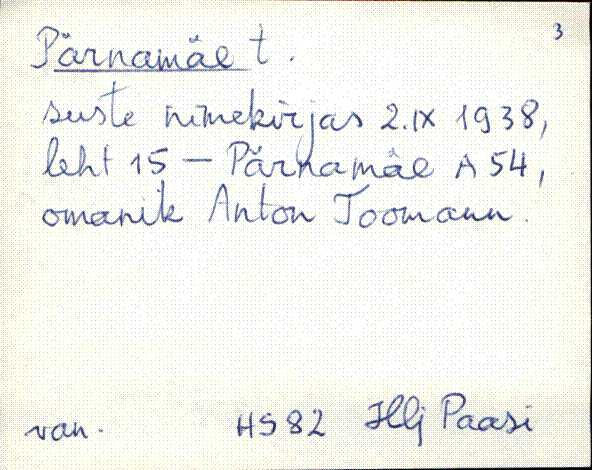 3
Pärnamäe t.
suste nimekirjas 2.IX 1938,
leht 15 — Pärnamäe A 54,
omanik Anton Toomann.
van. HS 82 Hlj Paasi